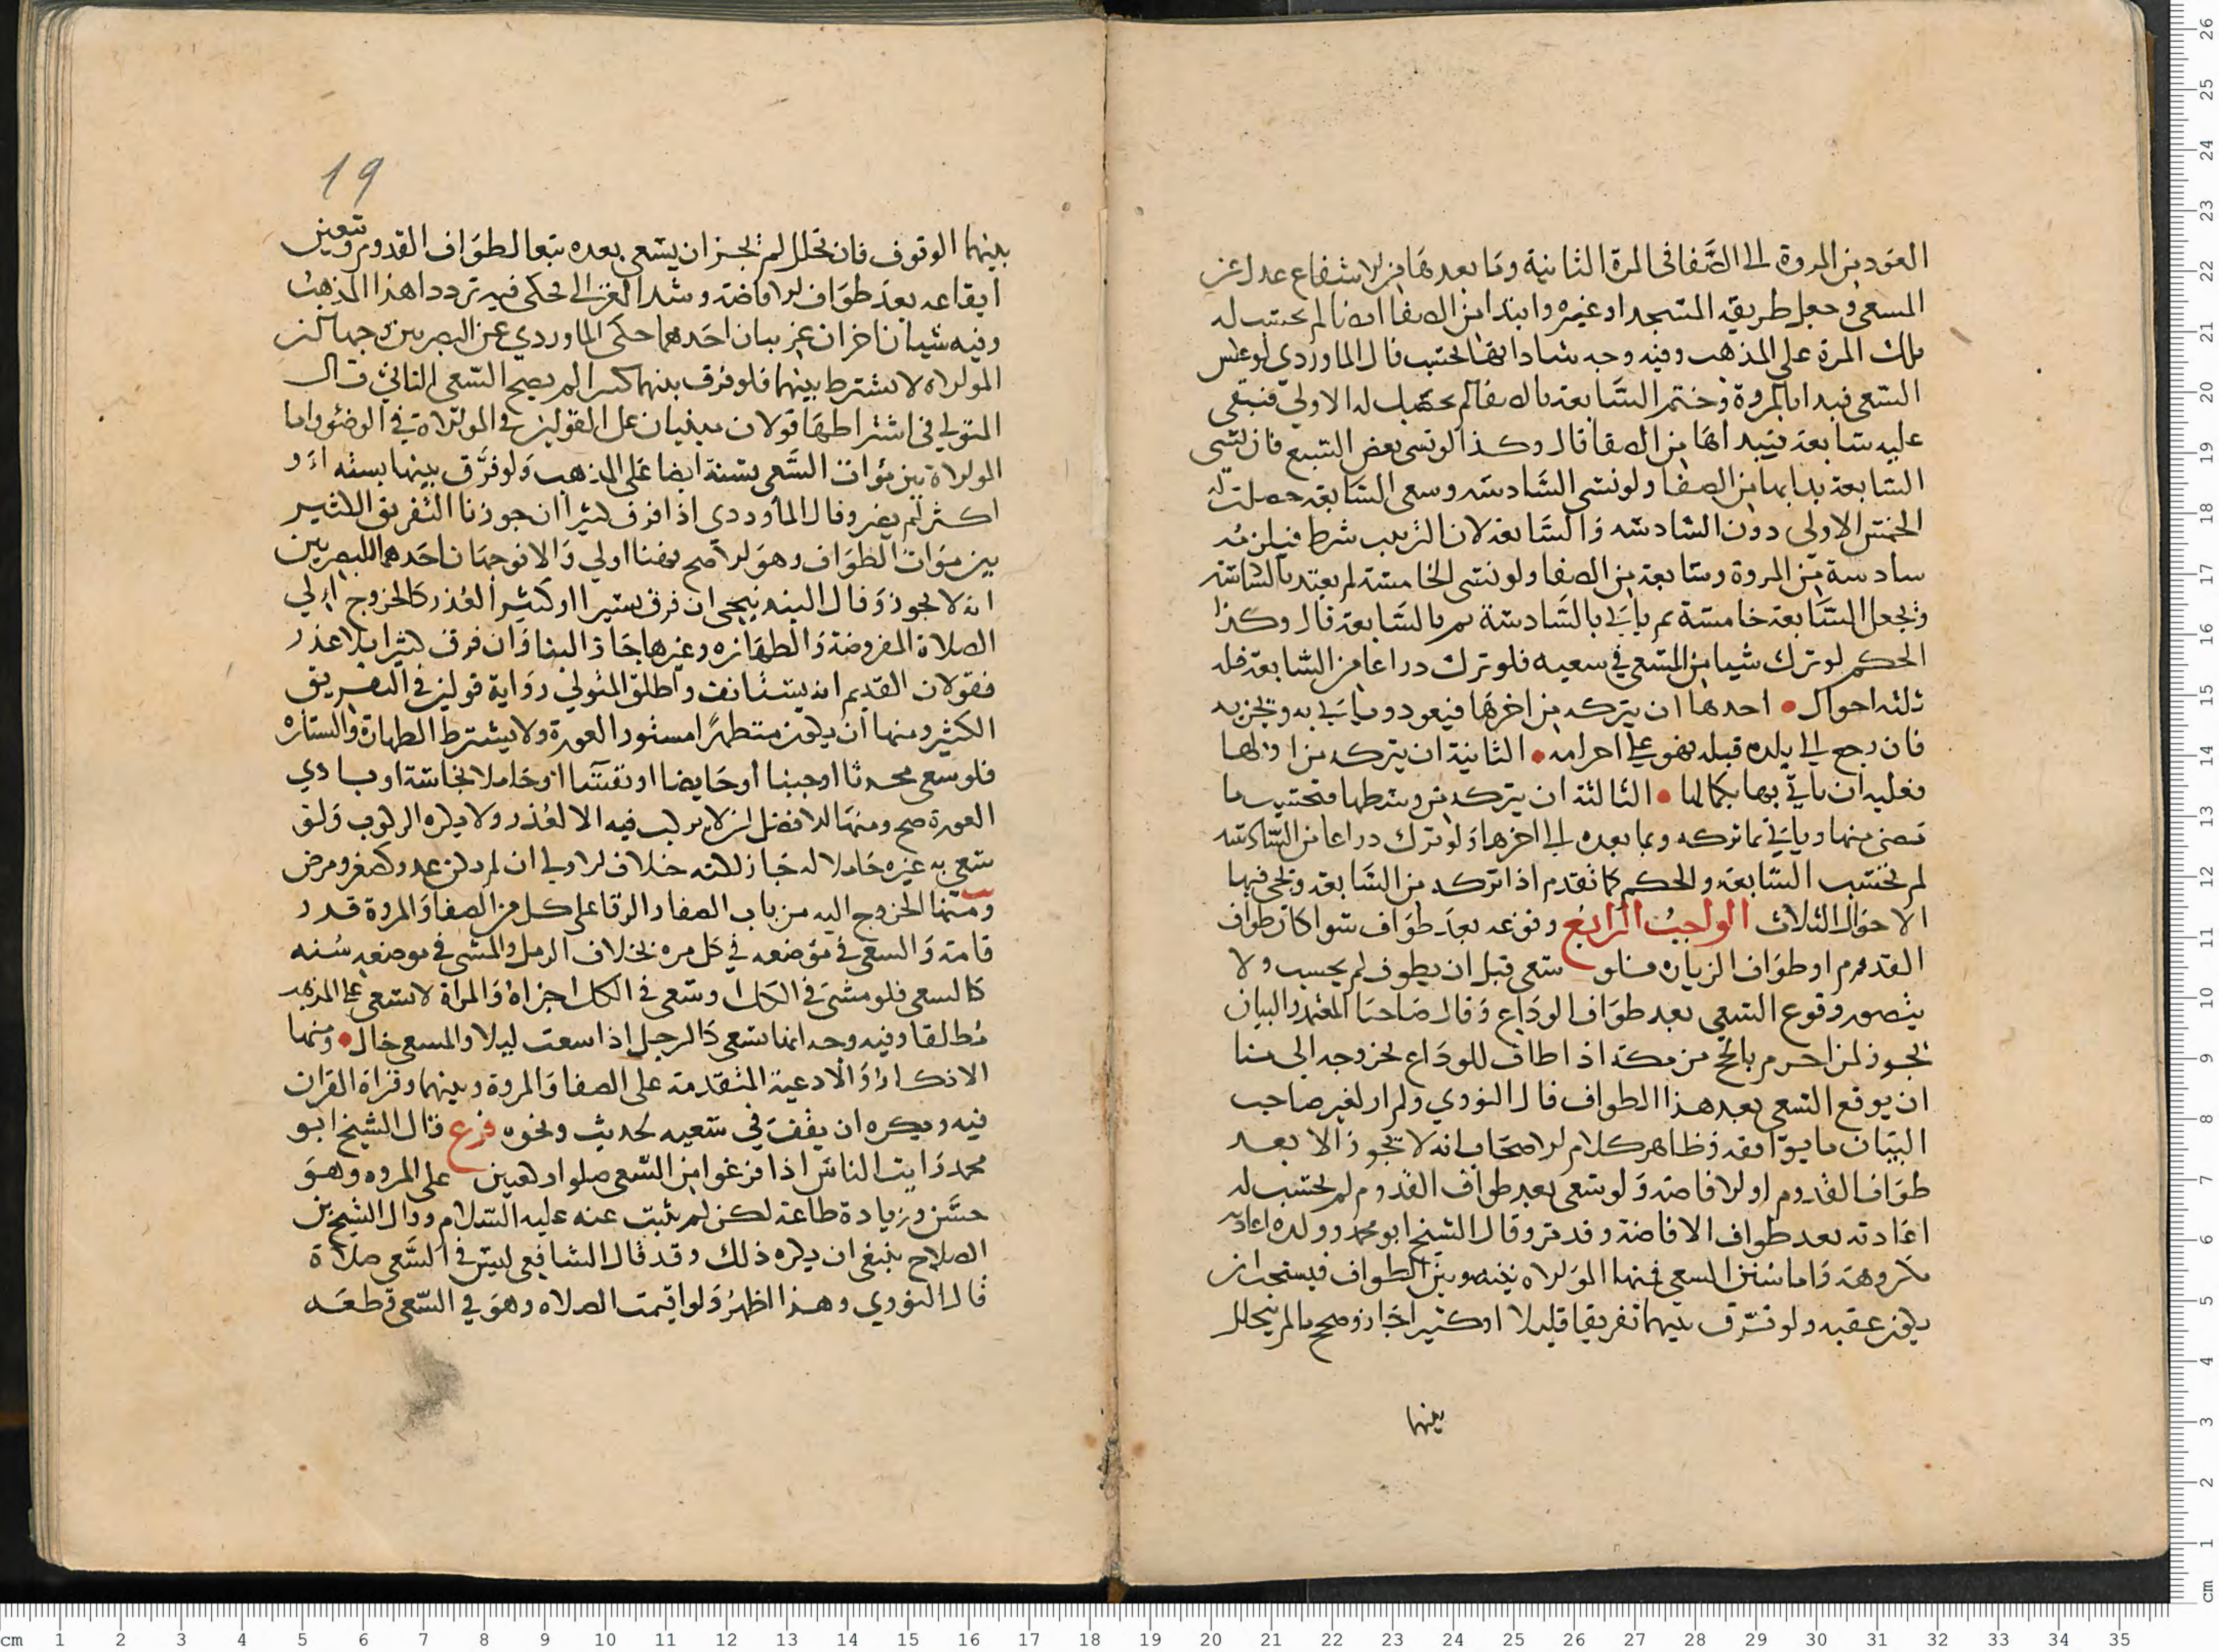 العود من المروة الى الصفا في المرة الثانية وما بعدها من الاشفاع عدل عن
المسعى وجعل طريقه المسجد او غيره وابتدا من الصفا ايضا لم يحتسب له
تلك المرة على المذهب وفيه وجه شاد انها تحتسب قال الماوردي لو عكس
السعى فبدا بالمروة وختم السابعة بالصفا لم يحتسب له الاولى فتبقى
عليه سابعة فيبداها من الصفا قال وكذا لو نسى بعض السبع فان نسى
السابعة بدا بها من الصفا ولو نسى السادسه وسعى السابعة حصلت له
الخمس الاولى دون السادسه والسابعه لان الترتيب شرط فيلزمه
سادسة من المروة وسابعة من الصفا ولو نسى الخامسة لم يعتد بالسادسة
وتجعل السابعة خامسة ثم ياتي بالسادسة ثم بالسابعة قال وكذا
الحكم لو ترك شيا من السعى في سعيه فلو ترك دراعا من السابعة فله
ثلثه احوال • احدها ان يتركه من اخرها فيعود وياتي به ويجزيه
فان رجع الى بلده قبله فهو على احرامه • الثانية ان يتركه من اولها
فعليه ان ياتي بها بكمالها • الثالثة ان يتركه من وسطها فتحتسب ما
مضى منها وياتي بما تركه وبما بعده الى اخرها ولو ترك دراعا من السادسه
لم تحتسب السابعة والحكم كما تقدم اذا تركه من السابعة وتجي فيها
الاحوال الثلاث الواجب الرابع وقوعه بعد طواف سوا كان طواف
القدوم او طواف الزيارة فلو سعى قبل ان يطوف لم يحسب ولا
يتصور وقوع السعي بعد طواف الوداع وقال صاحبا المعتمد والبيان
يجوز لمن احرم بالحج من مكة اذا طاف للوداع لخروجه الى منا
ان يوقع السعى بعد هذا الطواف قال النووي ولم ار لغير صاحب
البيان ما يوافقه وظاهر كلام الاصحاب انه لا يجوز الا بعد
طواف القدوم او الافاضة ولو سعى بعد طواف القدوم لم يحتسب له
اعادته بعد طواف الافاضة وقد مر وقال الشيخ ابو محمد وولده اعادته
مكروهة واما سنن السعي فمنها الموالاه بينه وبين الطواف فيستحب ان
يكون عقبه ولو فرق بينهما تفريقا قليلا او كثيرا جاز وصح ما لم يتخلل
بينهما
19
بينهما الوقوف فان تخلل لم يجز ان يسعى بعده تبعا لطواف القدوم وتعين
ايقاعه بعد طواف الافاضة وشد الغزالي فحكى فيه ترددا هذا المذهب
وفيه شيان اخران غريبان احدهما حكى الماوردي عن البصريين وجها ان
الموالاه لا تشترط بينهما فلو فرق بينهما كثيرا لم يصح السعى الثاني قال
المتولي في اشتراطها قولان مبنيان على القولين في الموالاة في الوضو واما
الموالاة بين مرات السعى سنة ايضا على المذهب ولو فرق بينها بسنه او
اكثر لم يضر وقال الماوردي اذا فرق كثيرا ان جوزنا التفريق الكثير
بين مرات الطواف وهو الاصح فهنا اولي والا فوجهان احدهما للبصريين
انه لا يجوز وقال البندنيجي ان فرق يسيرا او كثيرا لعذر كالخروج الى
الصلاة المفروضة والطهارة وغيرها جاز البنا وان فرق كثيرا بلا عذر
فقولان القديم انه يستانف واطلق المتولي رواية قولين في التفريق
الكثير ومنها ان يكون متطهرا مستور العورة ولا يشترط الطهارة والستارة
فلو سعى محدثا او جنبا او حايضا او نفسا او حاملا نجاسة او بادي
العورة صح ومنها الافضل ان لا يركب فيه الا لعذر ولا يكره الركوب ولو
سعى به غيره حاملا له جاز لكنه خلاف الاولى ان لم يكن عدر كصغر ومرض
ومنها الخروج اليه من باب الصفا والرقا على كل من الصفا والمروة قدر
قامة والسعى في موضعه في كل مره بخلاف الرمل والمشى في موضعه سنه
كالسعى فلو مشى في الكل او سعى في الكل اجزاه والمراة لا تسعى على المذهب
مطلقا وفيه وجه انها تسعى كالرجل اذا سعت ليلا والمسعى خال • ومنها
الاذكار والادعية المتقدمة على الصفا والمروة وبينهما وقراة القران
فيه ويكره ان يقف في سعيه لحديث ونحوه فرع قال الشيخ ابو
محمد رايت الناس اذا فرغوا من السعى صلوا ركعتين على المروه وهو
حسن وزيادة طاعة لكن لم يثبت عنه عليه السلام وقال الشيخ بن
الصلاح ينبغي ان يكره ذلك وقد قال الشافعي ليس في السعى صلاة
قال النووي وهذا اظهر ولو اقيمت الصلاه وهو في السعى قطعه